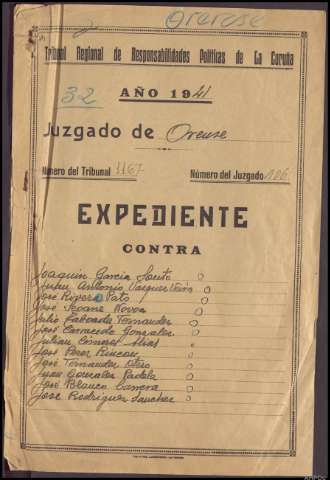 Orense
Tribunal Regional de Responsabilidades Políticas de La Coruña
32
AÑO 1941
Juzgado de Orense
Número del Tribunal 1167
Número del Juzgado 186
EXPEDIENTE
CONTRA
Joaquín Garcia Souto
Antonio Vazquez
José Rivera Pato
José Seoane Novoa
Julio Taboada Fernandez
José Carracedo Gonzalez
Julian Gimarez Alias
José Perez Rincon
José Fernandez Otero
Juan Gonzalez Padela
José Blanco Carrera
José Rodriguez Sanchez